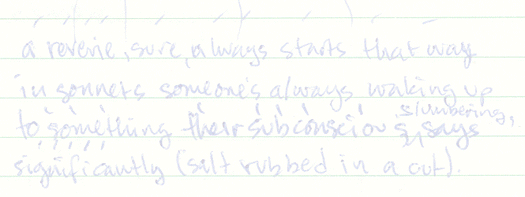 a reverie, sure, always starts that way
in sonnets someone's always waking up
slumbering,
to something their subconscious, says
significantly (silt rubbed in a cut).